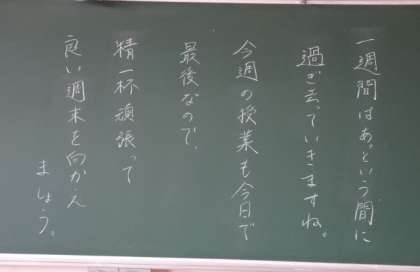 一週間はあっという間に
過ぎ去っていきますね。
今週の授業も今日で
最後なので、
精一杯頑張って
良い週末を向かえ
ましょう。